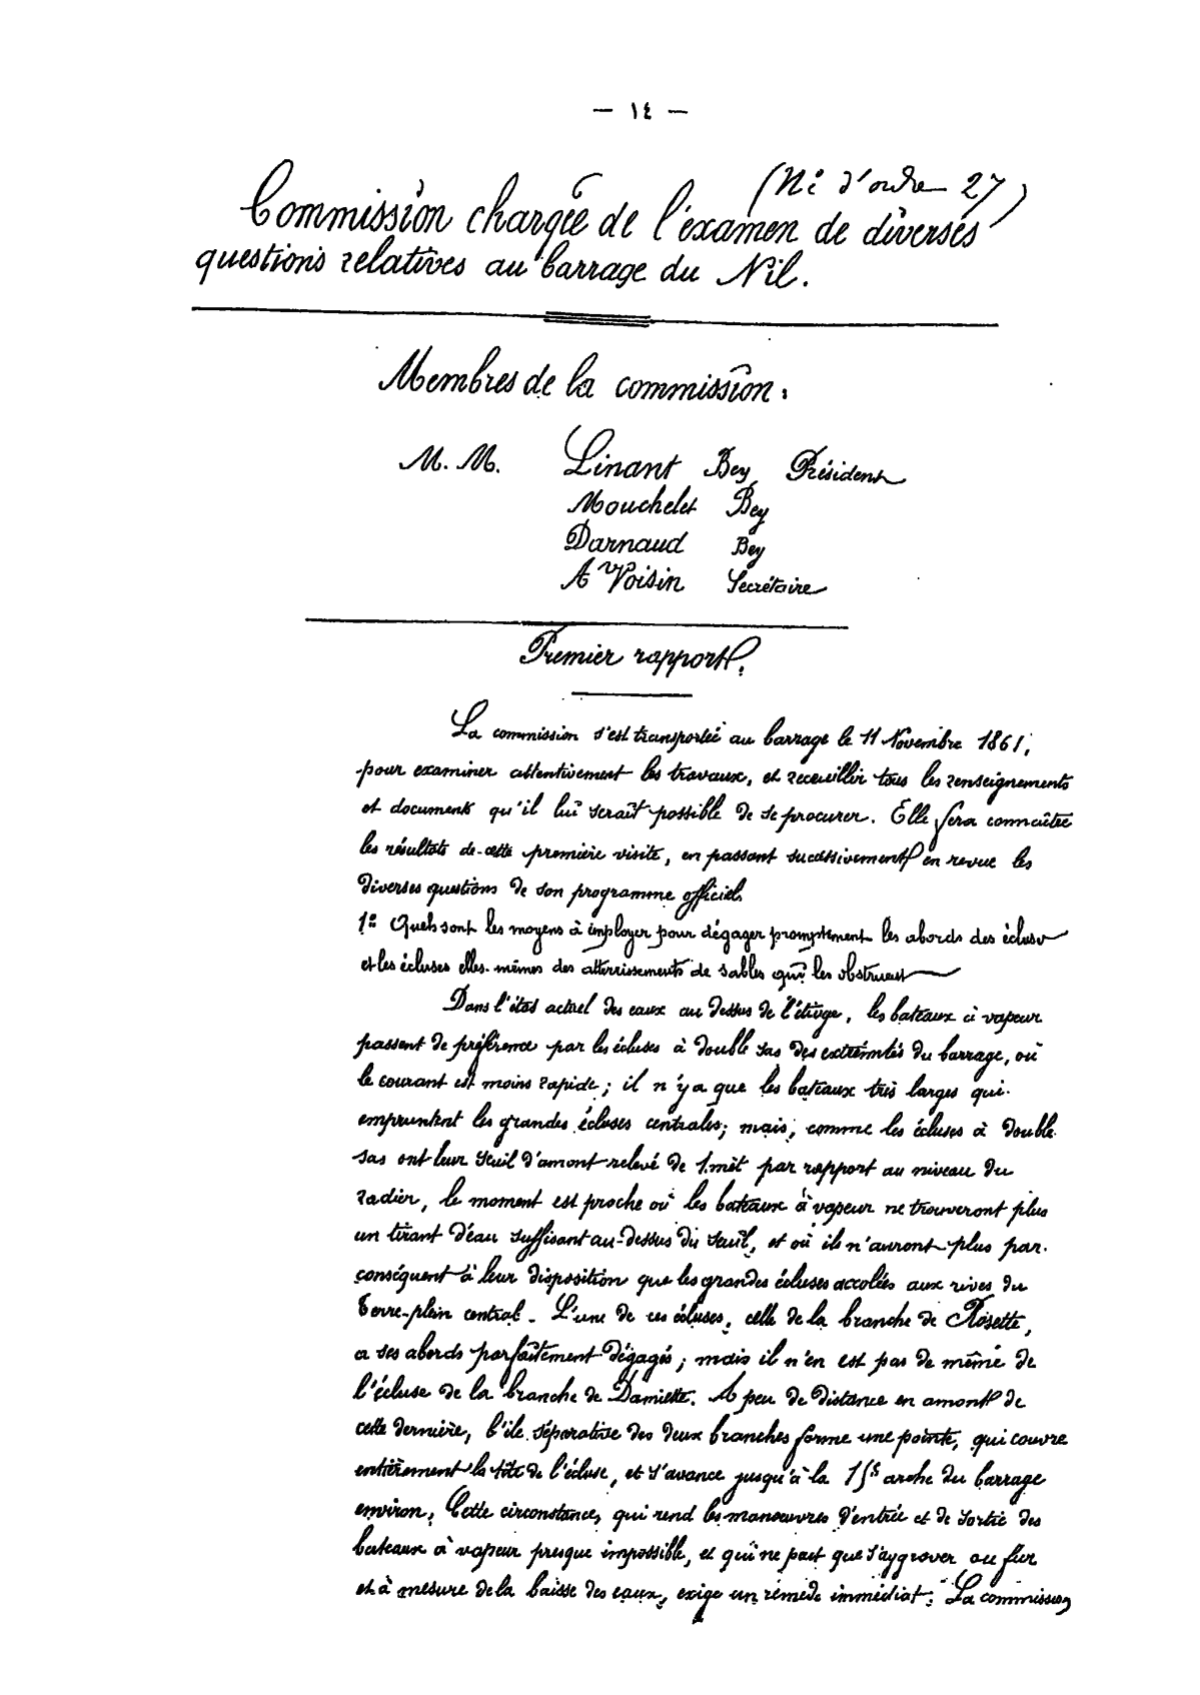 — ١٤ —
(N° d'ordre 27)
Commission chargée de l'examen de diverses
questions relatives au barrage du Nil.
Membres de la commission :
M. M. Linant Bey Président
Mouchelet Bey
Darnaud Bey
A Voisin Secrétaire
Premier rapport.
La commission s'est transportée au barrage le 11 Novembre 1861,
pour examiner attentivement les travaux, et receuillir tous les renseignements
et documents qu'il lui serait possible de se procurer. Elle fera connaître
les résultats de cette première visite, en passant successivement en revue les
diverses questions de son programme officiel.
1° Quels sont les moyens à employer pour dégager promptement les abords des écluses
et les écluses elles-mêmes des atterrissements de sables qui les obstruent
Dans l'état actuel des eaux au dessus de l'étiage, les bateaux à vapeur
passent de préférence par les écluses à double sas des extrémités du barrage, où
le courant est moins rapide ; il n'y a que les bateaux très larges qui
empruntent les grandes écluses centrales ; mais, comme les écluses à double
sas ont leur seuil d'amont relevé de 1.mèt par rapport au niveau du
radier, le moment est proche où les bateaux à vapeur ne trouveront plus
un tirant d'eau suffisant au-dessus du seuil, et où ils n'auront plus par
conséquent à leur disposition que les grandes écluses accolées aux rives du
terre-plein central. L'une de ces écluses, celle de la branche de Rosette,
a ses abords parfaitement dégagés ; mais il n'en est pas de même de
l'écluse de la branche de Damiette. A peu de distance en amont de
cette dernière, l'île séparative des deux branches forme une pointe, qui couvre
entièrement la tête de l'écluse, et s'avance jusqu'à la arche du barrage
environ. Cette circonstance, qui rend les manœuvres d'entrée et de sortie des
bateaux à vapeur presque impossible, et qui ne peut que s'aggraver au fur
et à mesure de la baisse des eaux, exige un remède immédiat. La commission